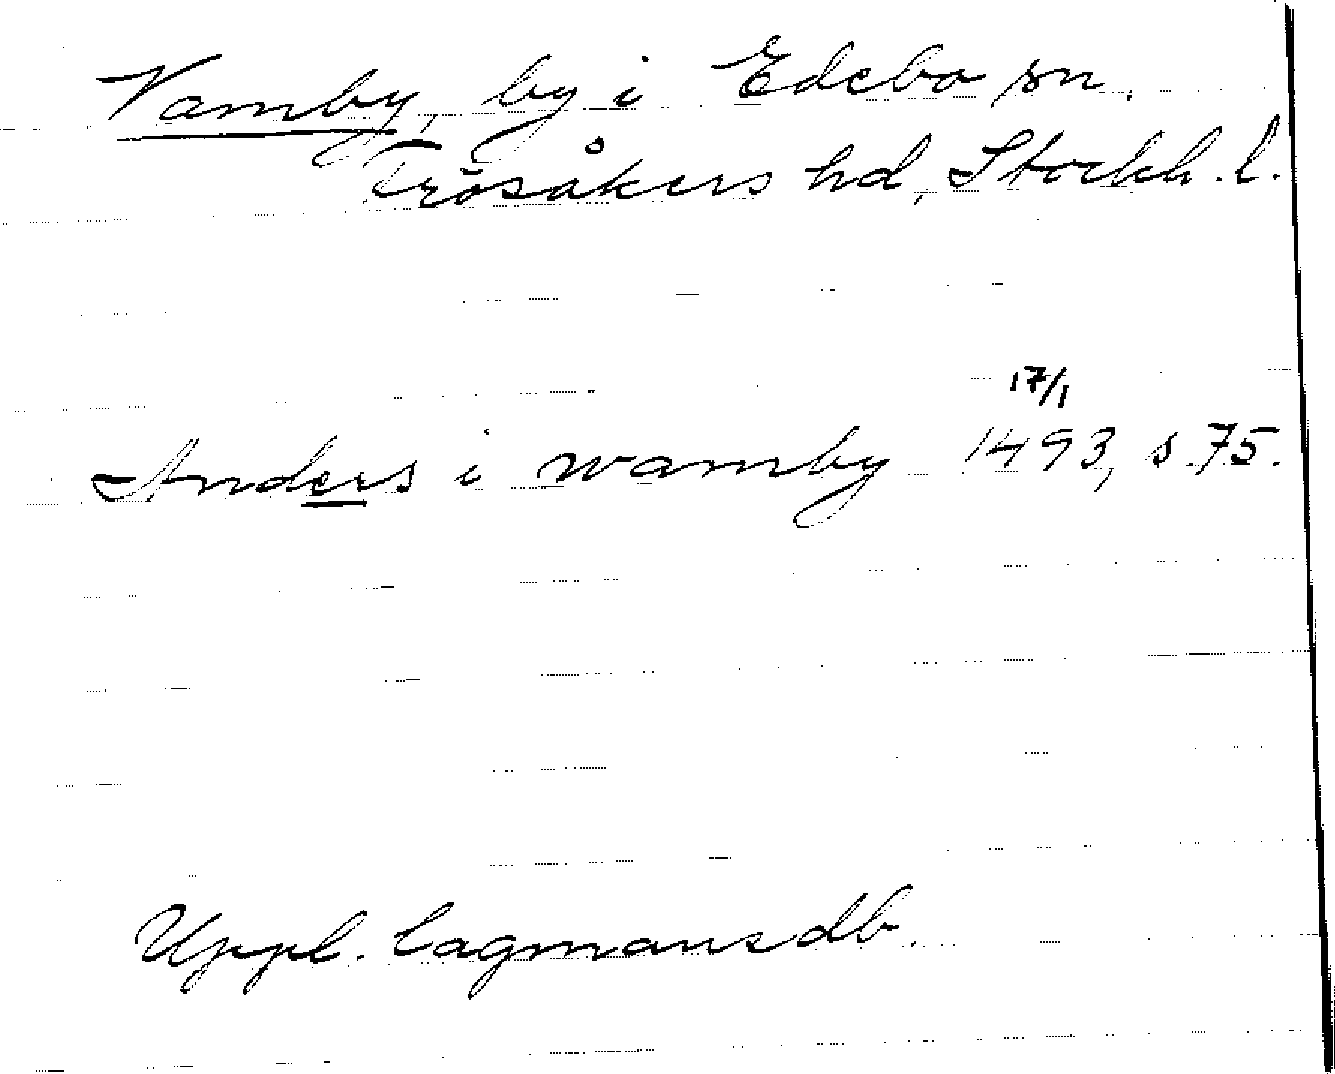 Vamby, by i Edebo sn.
Frösåkers hd, Stockh. l.
17/1
Anders i wamby 1493, s. 75.
Uppl. lagmansdb.